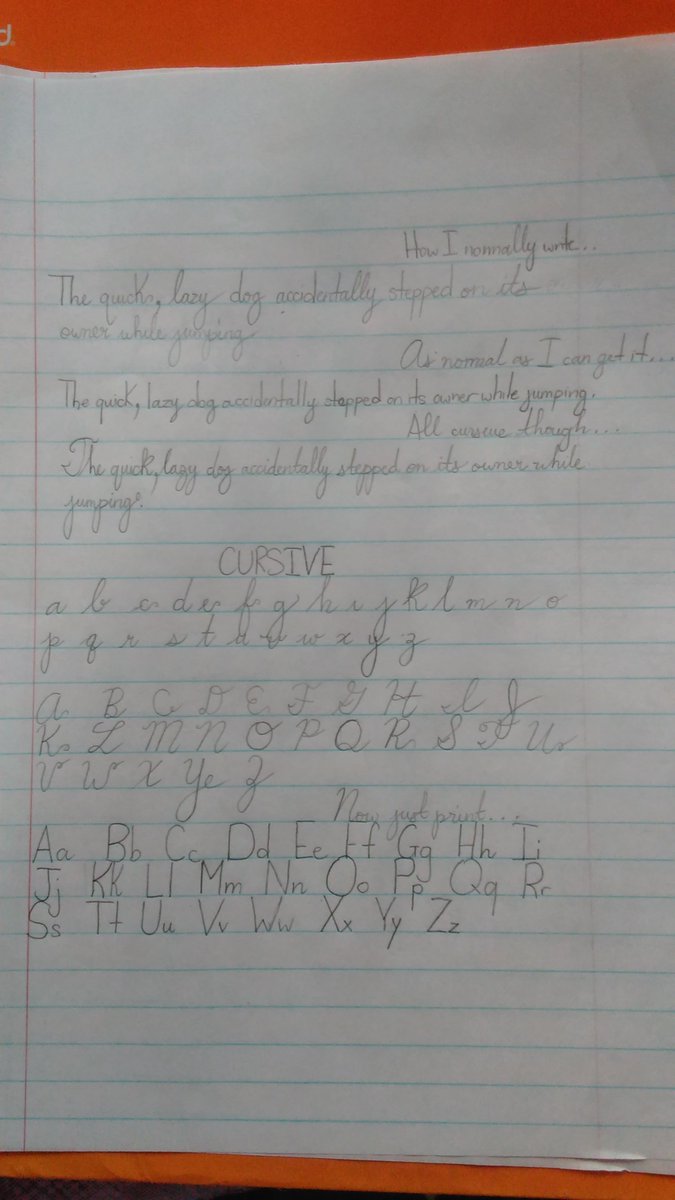 d
How I normally write...
The quick, lazy dog accidentally stepped on its
owner while jumping
As normal as I can get it...
The quick, lazy dog accidentally stepped on its owner while jumping.
All cursive though...
The quick, lazy dog accidentally stepped on its owner while
jumping.
CURSIVE
a b c d e f g h i j k l m n o
p q r s t u v w x y z
A B C D E F G H I J
K L M N O P Q R S T U
V W X Y Z
Now just print...
Aa Bb Cc Dd Ee Ff Gg Hh Ii
Jj Kk Ll Mm Nn Oo Pp Qq Rr
Ss Tt Uu Vv Ww Xx Yy Zz